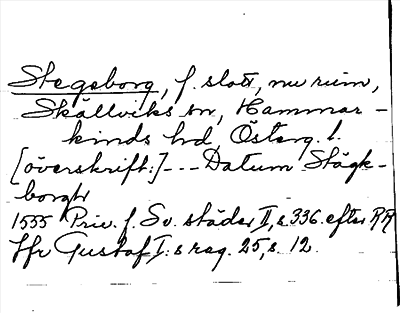 Stegeborg, f. slott, nu ruin,
Skällviks sn, Hammar-
kinds hd, Österg. l.
[överskrift:] --- Datum Stägk-
borgh
1555 Priv. f. Sv. städer II, s. 336. efter RA
Hfr Gustaf I:s reg. 25, s. 12.